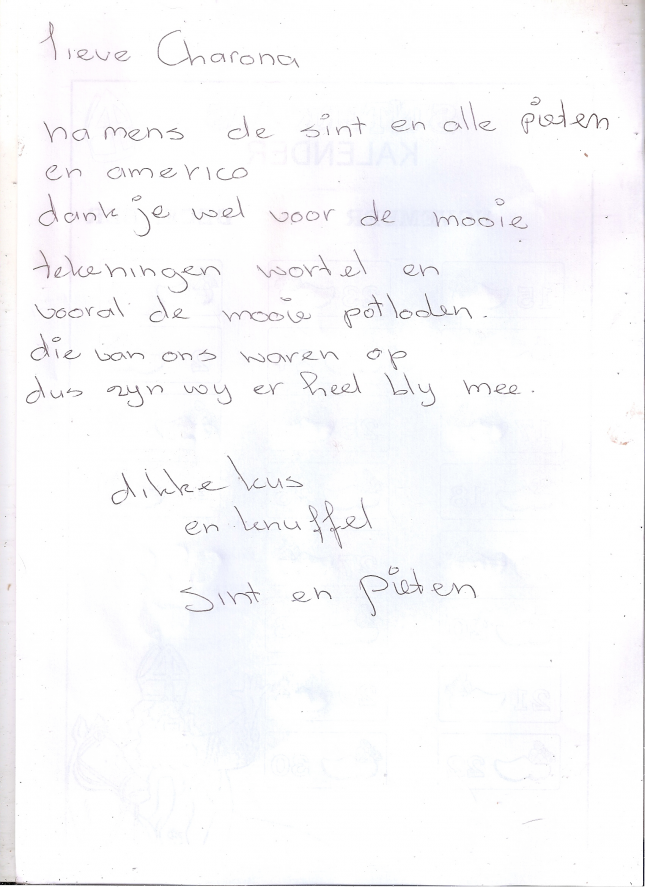 lieve Charona
namens de sint en alle pieten
en americo
dank je wel voor de mooie
tekeningen wortel en
vooral de mooie potloden.
die van ons waren op
dus zyn wy er heel bly mee.
dikke kus
en knuffel
sint en pieten
KALENDER